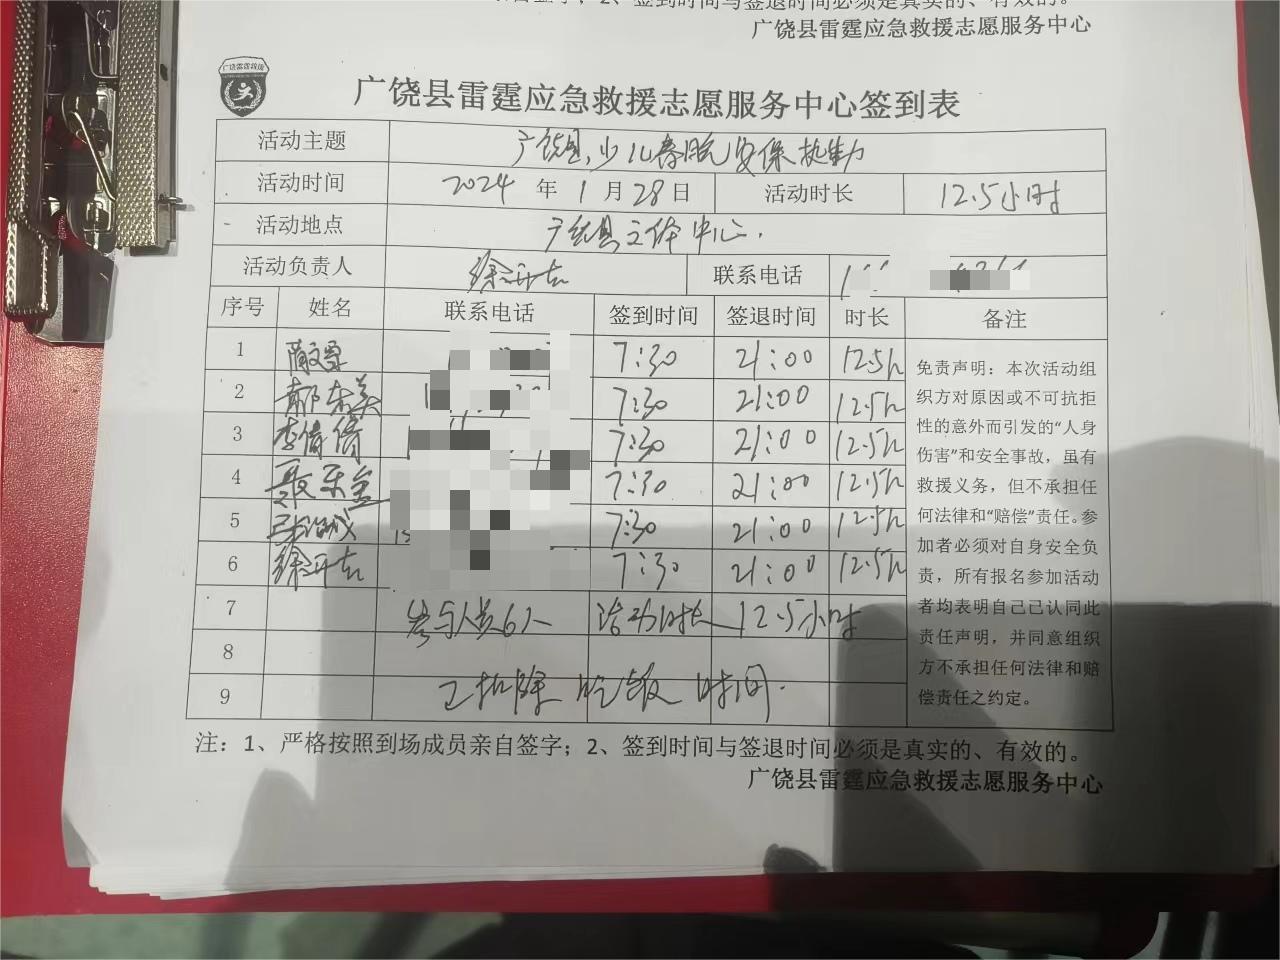 2、签到时间与签退时间必须是真实的、有效的。
广饶县雷霆应急救援志愿服务中心
广饶雷霆救援
广饶县雷霆应急救援志愿服务中心签到表
活动主题 广饶县少儿春晚安保执勤
活动时间 2024 年 1 月 28 日 活动时长 12.5小时
活动地点 广饶县文体中心.
活动负责人 联系电话
序号 姓名 联系电话 签到时间 签退时间 时长 备注
1 7:30 21:00 12.5h
2 7:30 21:00 12.5h
3 李倩倩 7:30 21:00 12.5h
4 7:30 21:00 12.5h
5 7:30 21:00 12.5h
6 7:30 21:00 12.5h
7 参与人员6人 活动时长 12.5小时
8
9 已扣除吃饭时间.
免责声明：本次活动组
织方对原因或不可抗拒
性的意外而引发的“人身
伤害”和安全事故，虽有
救援义务，但不承担任
何法律和“赔偿”责任。参
加者必须对自身安全负
责，所有报名参加活动
者均表明自己已认同此
责任声明，并同意组织
方不承担任何法律和赔
偿责任之约定。
注：1、严格按照到场成员亲自签字；2、签到时间与签退时间必须是真实的、有效的。
广饶县雷霆应急救援志愿服务中心